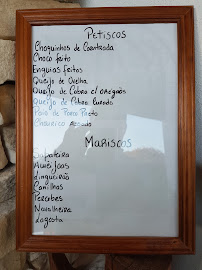 Petiscos
Choquinhos de Coentrada
Choco frito
Enguias fritas
Queijo de Ovelha
Queijo de Cabra c/ oregãos
Queijo de Cabra Curado
Paio de Porco Preto
Chourico Assado
Mariscos
Sapateira
Amêijoas
Lingueirão
Canilhas
Percebes
Navalheira
Lagosta